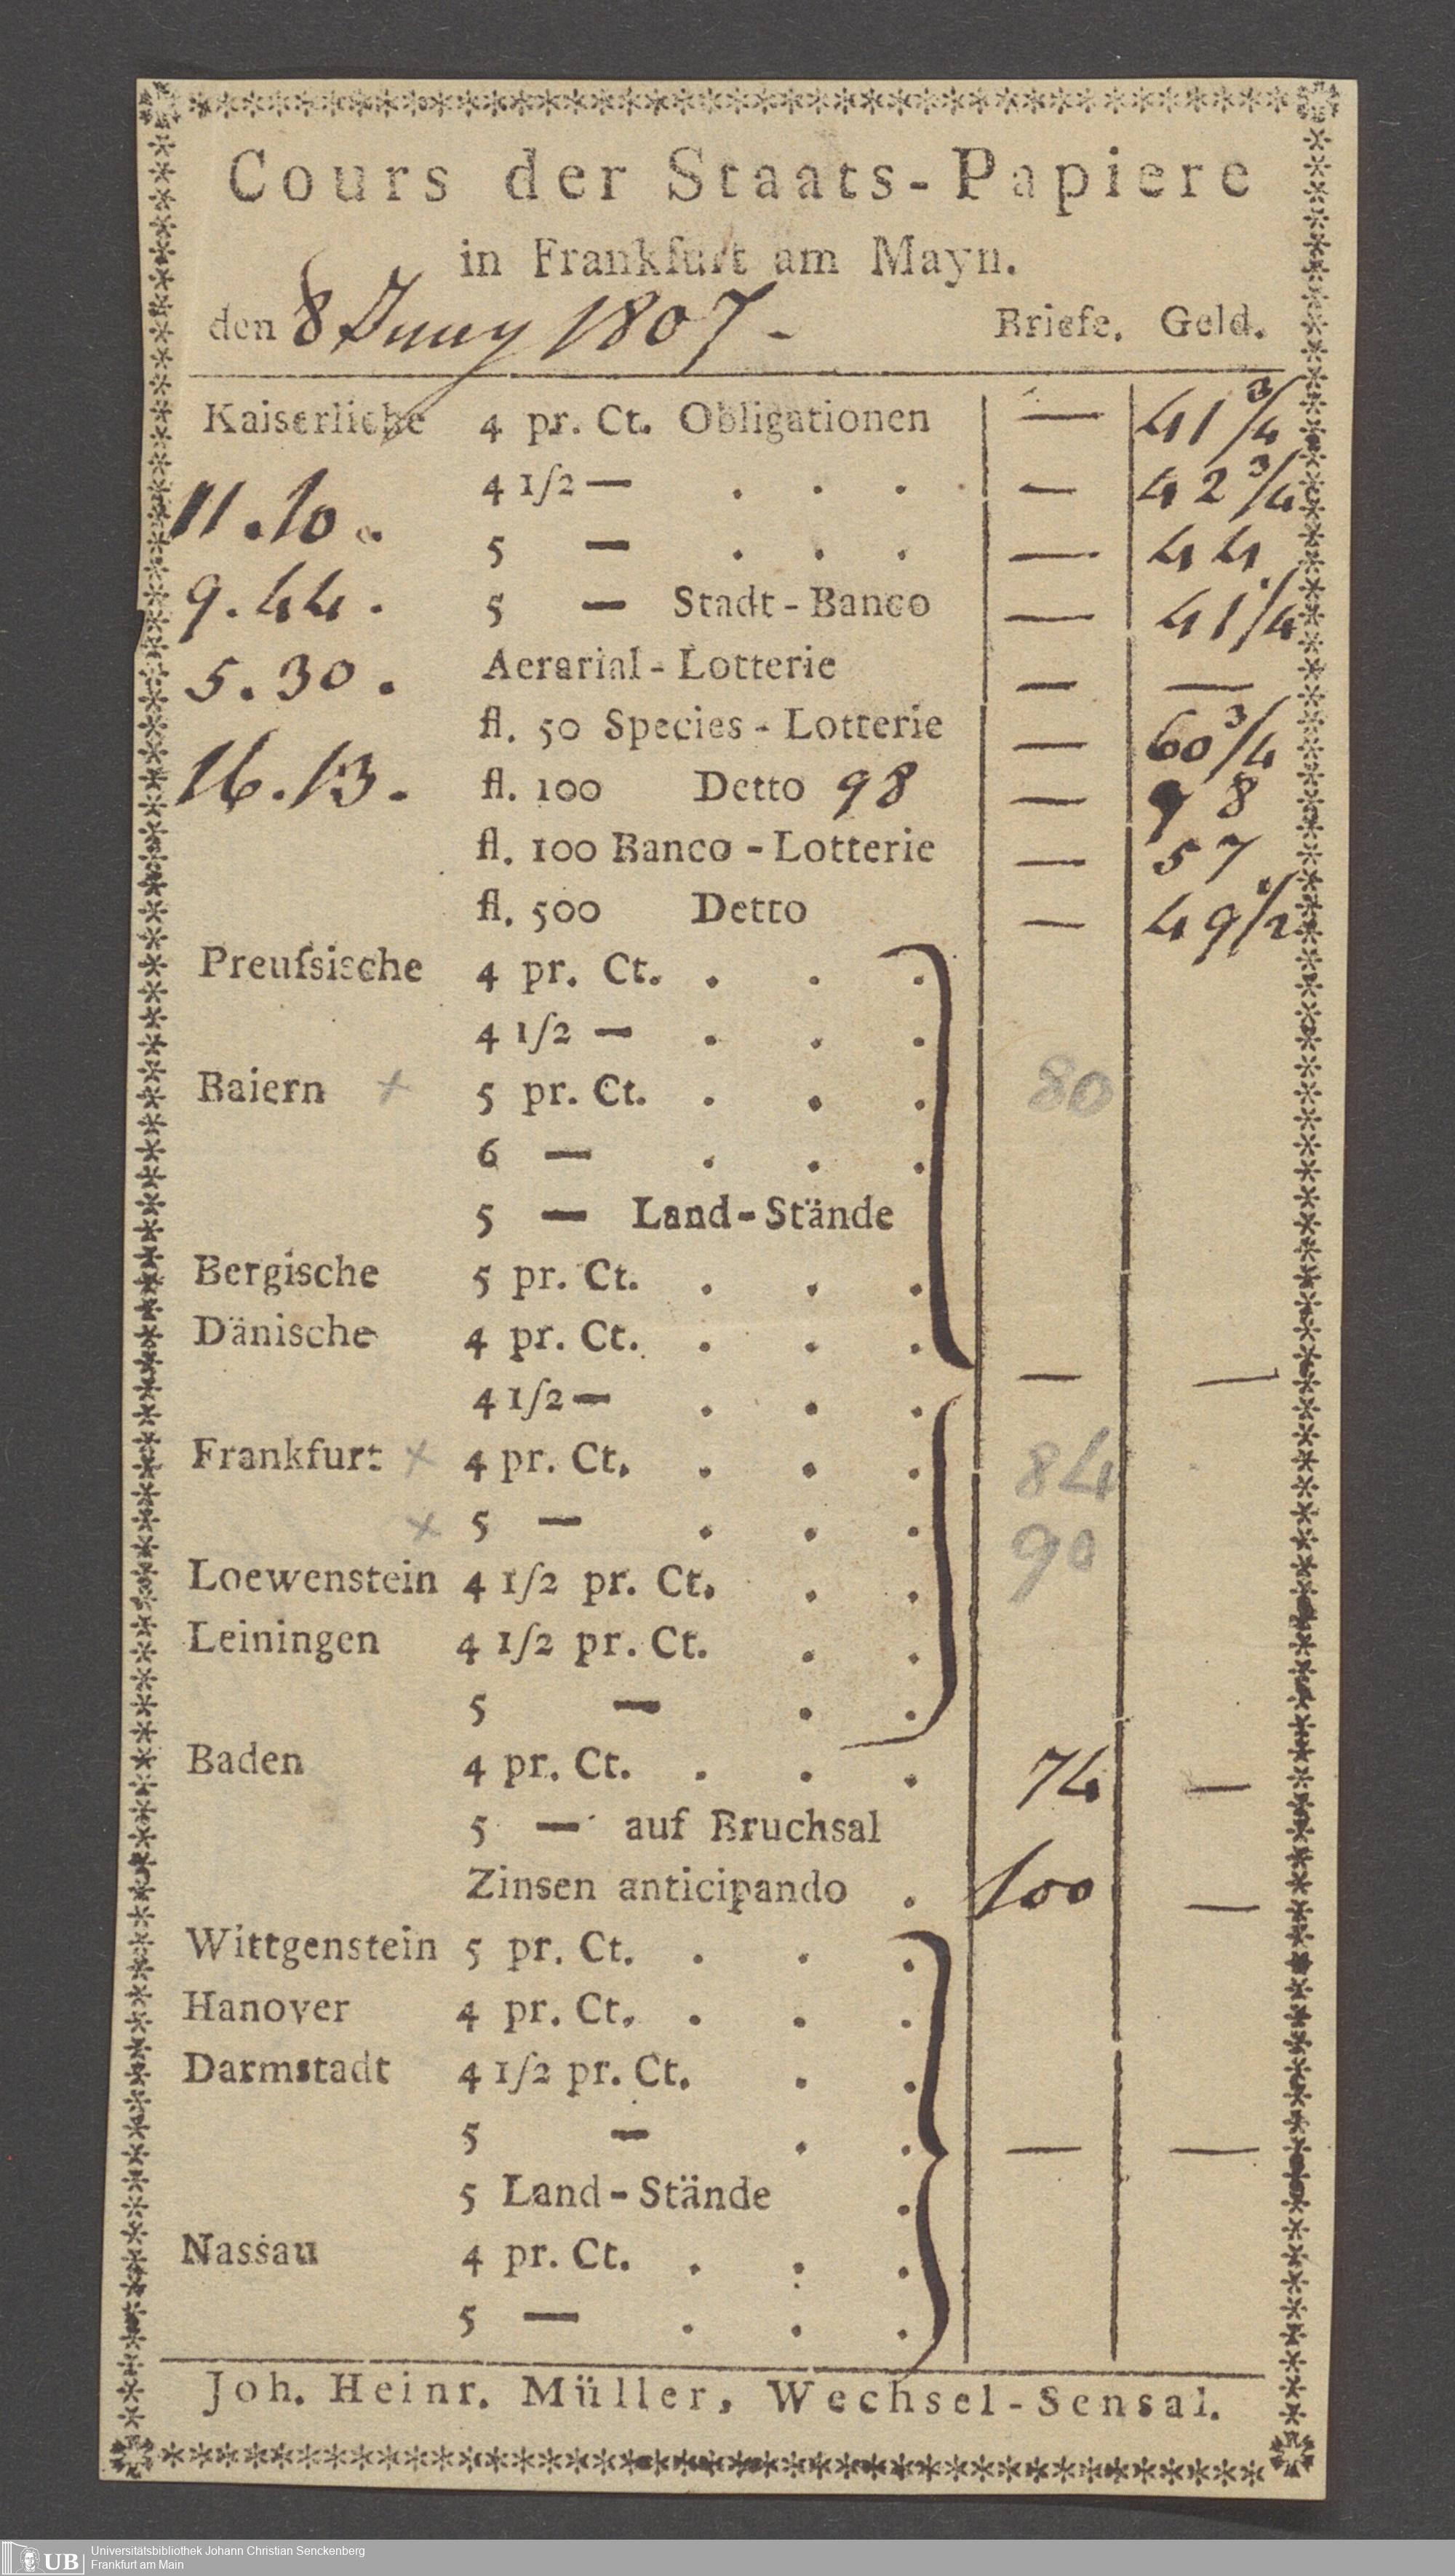 Cours der Staats-Papiere
in Frankfurt am Mayn.
den 8 Juny 1807 - Briefe. Geld.
Kaiserliche 4 pr. Ct. Obligationen — 41 3/4
4 1/2 — . . . — 42 3/4
11.10.
5 — . . . — 44
9.44. 5 — Stadt-Banco — 41 1/4
5.30. Aerarial-Lotterie — —
fl. 50 Species-Lotterie — 60 3/4
16.13. fl. 100 Detto 98 — 98
fl. 100 Banco-Lotterie — 57
fl. 500 Detto — 49 1/2
Preuſsische 4 pr. Ct. . . .
4 1/2 — . . .
Baiern x 5 pr. Ct. . . . 80
6 — . . .
5 — Land-Stände
Bergische 5 pr. Ct. . . .
Dänische 4 pr. Ct. . . .
— —
4 1/2 — . . .
Frankfurt x 4 pr. Ct. . . . 84
x 5 — . . . 90
Loewenstein 4 1/2 pr. Ct. . .
Leiningen 4 1/2 pr. Ct. . .
5 — . .
Baden 4 pr. Ct. . . . 74 —
5 — auf Bruchsal
Zinsen anticipando . 100 —
Wittgenstein 5 pr. Ct. . . .
Hanover 4 pr. Ct. . . .
Darmstadt 4 1/2 pr. Ct. . .
5 — . . — —
5 Land-Stände .
Nassau 4 pr. Ct. . . .
5 — . . .
Joh. Heinr. Müller, Wechsel-Sensal.
UB Universitätsbibliothek Johann Christian Senckenberg
Frankfurt am Main